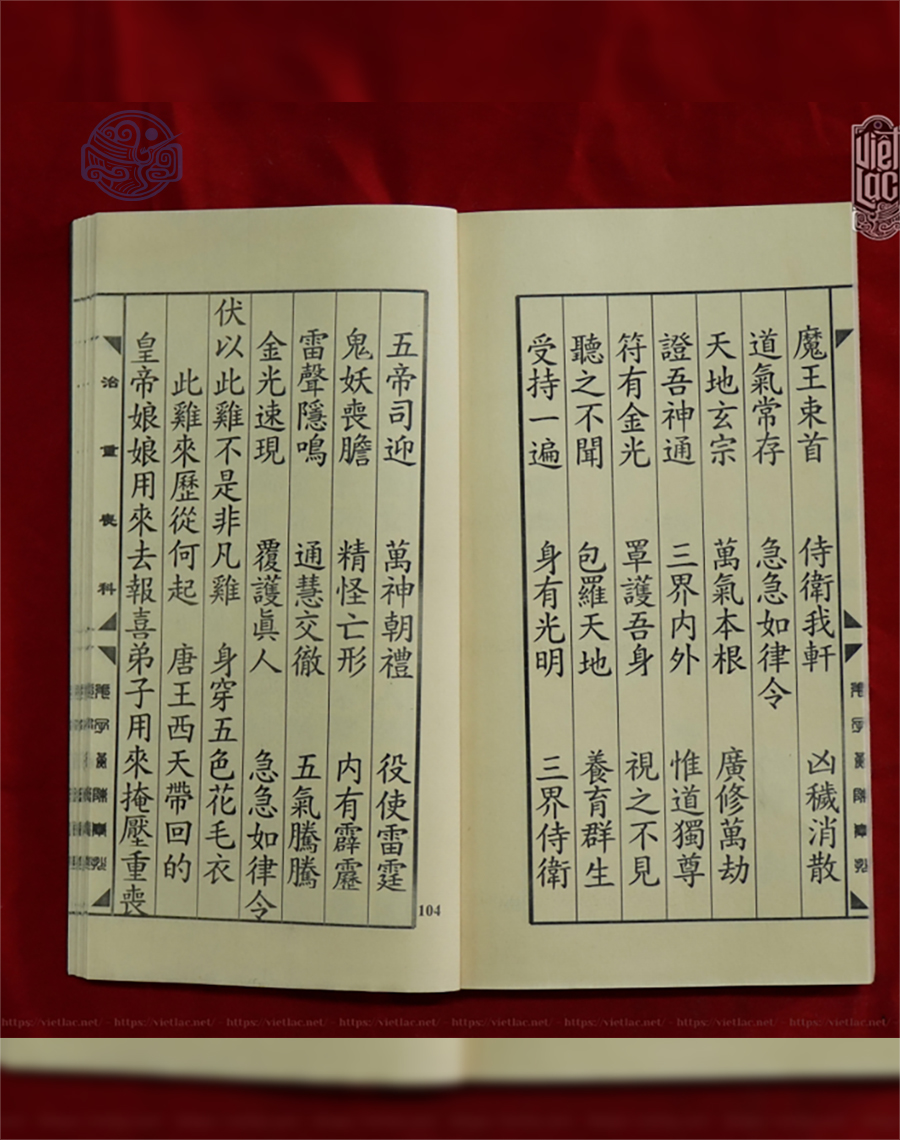 Việt Lạc
魔王束首 侍衛我軒 凶穢消散
道氣常存 急急如律令
天地玄宗 萬氣本根 廣修萬劫
證吾神通 三界內外 惟道獨尊
符有金光 罩護吾身 視之不見
聽之不聞 包羅天地 養育群生
受持一遍 身有光明 三界侍衛
五帝司迎 萬神朝禮 役使雷霆
鬼妖喪膽 精怪亡形 内有霹靂
雷聲隱鳴 通慧交徹 五氣騰騰
金光速現 覆護眞人 急急如律令
伏以此雞不是非凡雞 身穿五色花毛衣
此雞來歷從何起 唐王西天帶回的
皇帝娘娘用來去報喜弟子用來掩壓重喪
治重喪科
104
https://vietlac.net/ - https://vietlac.net/ - https://vietlac.net/ - https://vietlac.net/ - https://vietlac.net/ - https://vietlac.net/ - https://vietlac.net/ - https://vietlac.net/